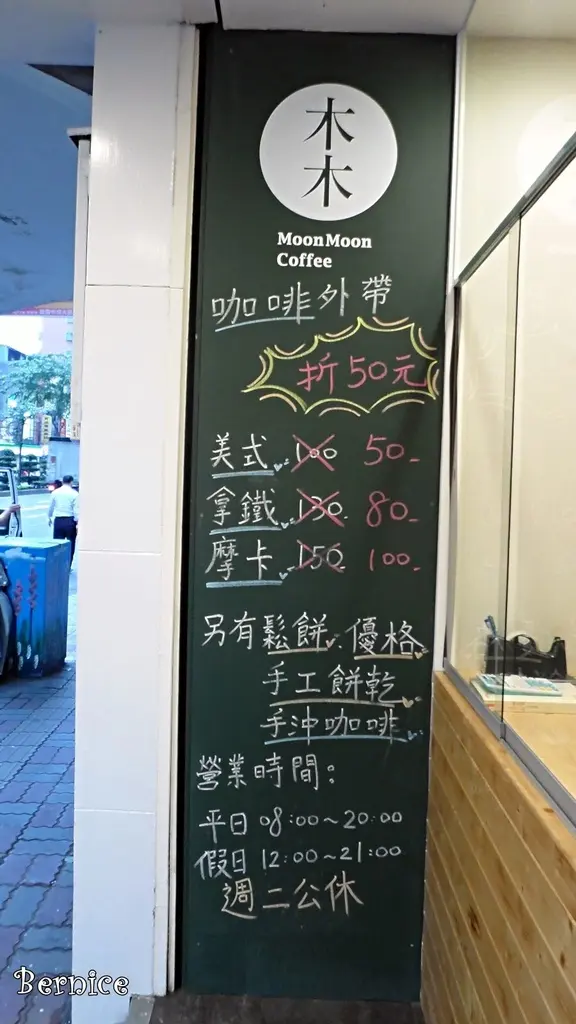 木
木
MoonMoon
Coffee
咖啡外帶
折50元
美式 100 50.-
拿鐵 130. 80.-
摩卡 150. 100.-
另有鬆餅、優格
手工餅乾
手沖咖啡
營業時間:
平日 08:00~20:00
假日 12:00~21:00
週二公休
Bernice